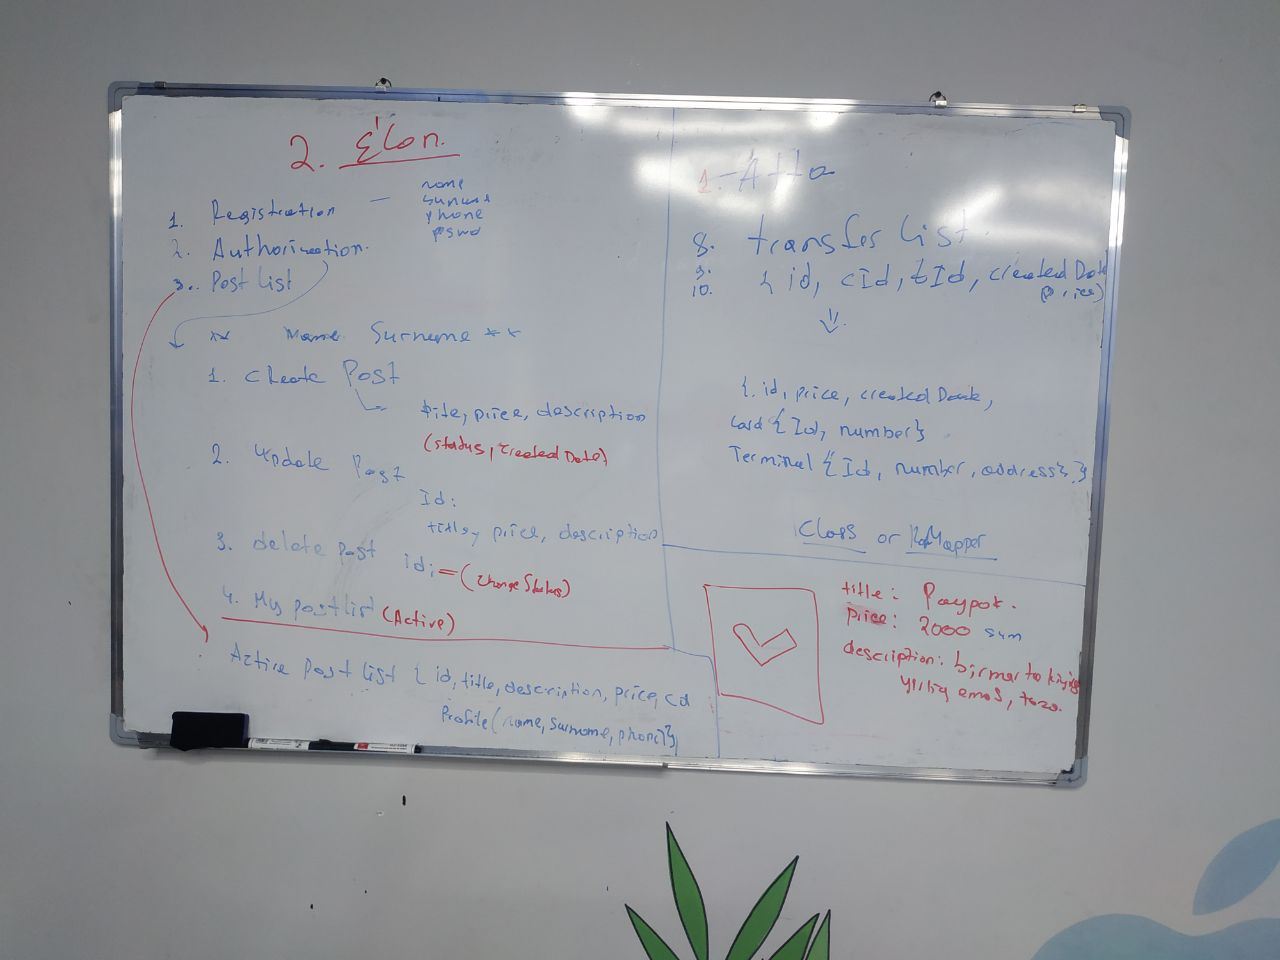 2. E'lon.
1. Registration —
name
surname
phone
pswd
2. Authorization.
3. Post List
** Name Surname **
1. create Post
title, price, description
(status, createdDate)
2. Update Post
Id:
title, price, description
3. delete post id: = (change Status)
4. My post list (Active)
Active post list { id, title, description, price, cd
Profile (name, surname, phone)},
1. Atto
8. transfer list.
9.
10.
{ id, cId, tId, createdDate
price}
{ id, price, createdDate,
Card { Id, number}
Terminal { Id, number, address} }
Class or RowMapper
title: Paypoq.
price: 2000 sum
description: bir marta
yirtiq emas, toza.